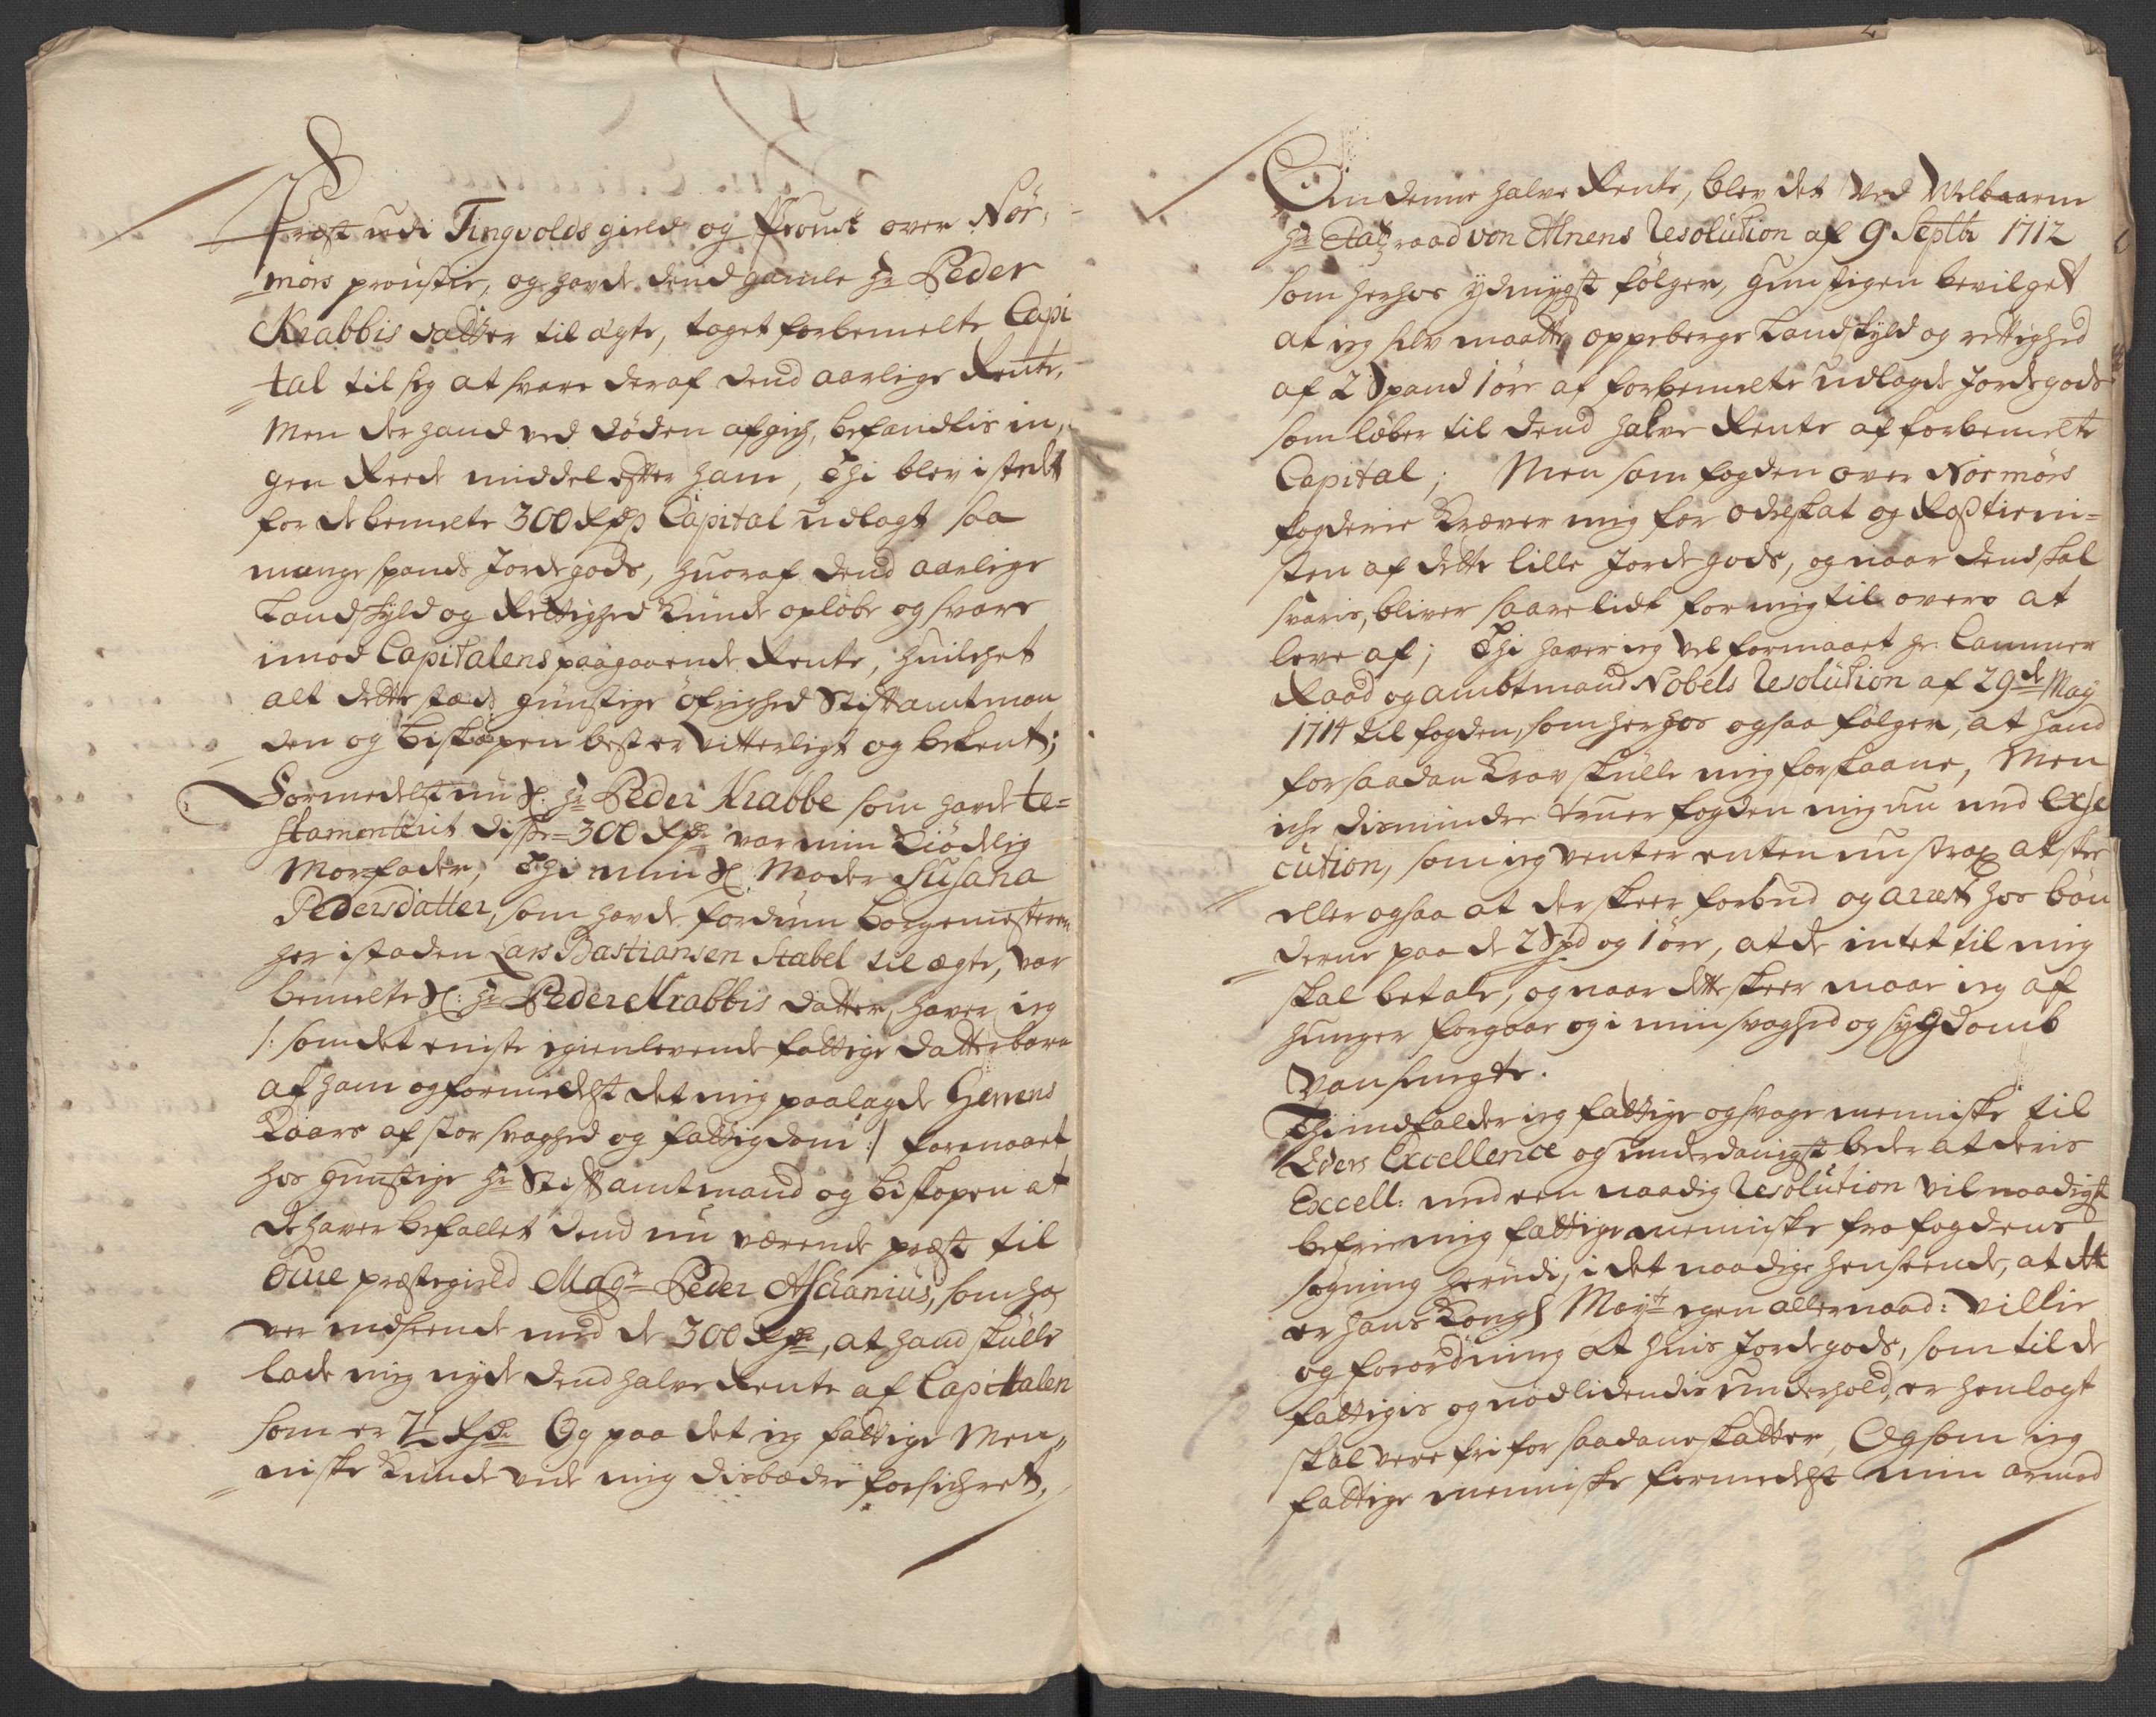 Præst udi Tingvolds gield og Proust over Nör-
mörs proustie, og havde dend gamle Hr Peder
Krabbis datter til ægte, taget forbemelte Capi
tal til sig at svare deraf dend aarlige Rente,
Men der hand ved döden afgich, befandtis in,
gen Reede middel efter ham, Thi blev i stedet
for de bemelte 300 Rdr Capital udlagt saa
mange spands Jordegods, huoraf dend aarlige
Landskyld og Rettighed kunde oplöbe og svare
imod Capitalens paagaaende Rente, huilchet
alt dette steds gunstige öfrighed Stiftamtman
den og Biskopen best er vitterligt og bekent;
Formedelst nu Sl. Hr Peder Krabbe som havde te=
stamenterit disse 300 Rdr var min kiödelig
Morfader, Thi min Sl: Moder Susana
Pedersdatter, som havde fordum Borgemesteren
her i staden Lars Bastiansen Stabel til ægte, var
bemelte Sl: Hr Peder Krabbis datter, haver ieg
/: som det eniste igienlevende fattige datterbarn
af ham og formedelst det mig paalagde Herrens
Kaars af stor svaghed og fattigdom :/ formaaet
hos gunstige Hr Stiftamtmand og Biskopen at
de haver befallet dend nu værende præst til
Oure præstegield Magr Peder Aschanius, som ha
ver indseende med de 300 Rdr, at hand skulle
lade mig nyde dend halve Rente af Capitalen
som er 7½ Rdr Og paa det ieg fattige Men,,
niske kunde vide mig disbædre forsichret,
Om denne halve Rente, blev det ved Velbaarne
Hr Etatzraad von Ahnens Resolution af 9 Septbr 1712
som herhos ydmygst fölger, gunstigen bevilget
at ieg selv maatte oppeberge Landskyld og rettighed
af 2 Spand 1 öre af forbemelte udlagde Jordegods
som löber til dend halve Rente af forbemelte
Capital; Men som fogden over Nörmörs
fogderie kræver mig for odelskat og Rostieni=
sten af dette lille Jordegods, og naar dend skal
svaris, bliver saare lidt for mig til overs at
leve af; Thi haver ieg vel formaaet Hr. Cammer
Raad og ambtmand Nobels Resolution af 29de May
1714 til fogden, som herhos ogsaa fölger, at hand
for saadan krav skulle mig forskaane, Men
iche disminder truer fogden mig nu med Exse
cution, som ieg venter enten nu strax at skee
eller ogsaa at der skeer forbud og arrest hos bön
derne paa de 2 Spd og 1 öre, at de intet til mig
skal betale, og naar dette skeer maae ieg af
hunger forgaae og i min svaghed og sygdomb
vansmegte.
Thi indfalder ieg fattige og svage menniske til
Eders Excellence og underdanigst beder at deris
Excell: med een naadig Resolution vil naadigst
befrie mig fattige menniske fra fogdens
sögning herudi, i det naadige henseende, at det
er hans Kongl Mayts egen allernaad: villie
og forordning at huis Jordegods, som til de
fattigis og nödlidendis underhold, er henlagt
skal vere fri for saadane skatter, Og som ieg
fattige menniske formedelst min armod